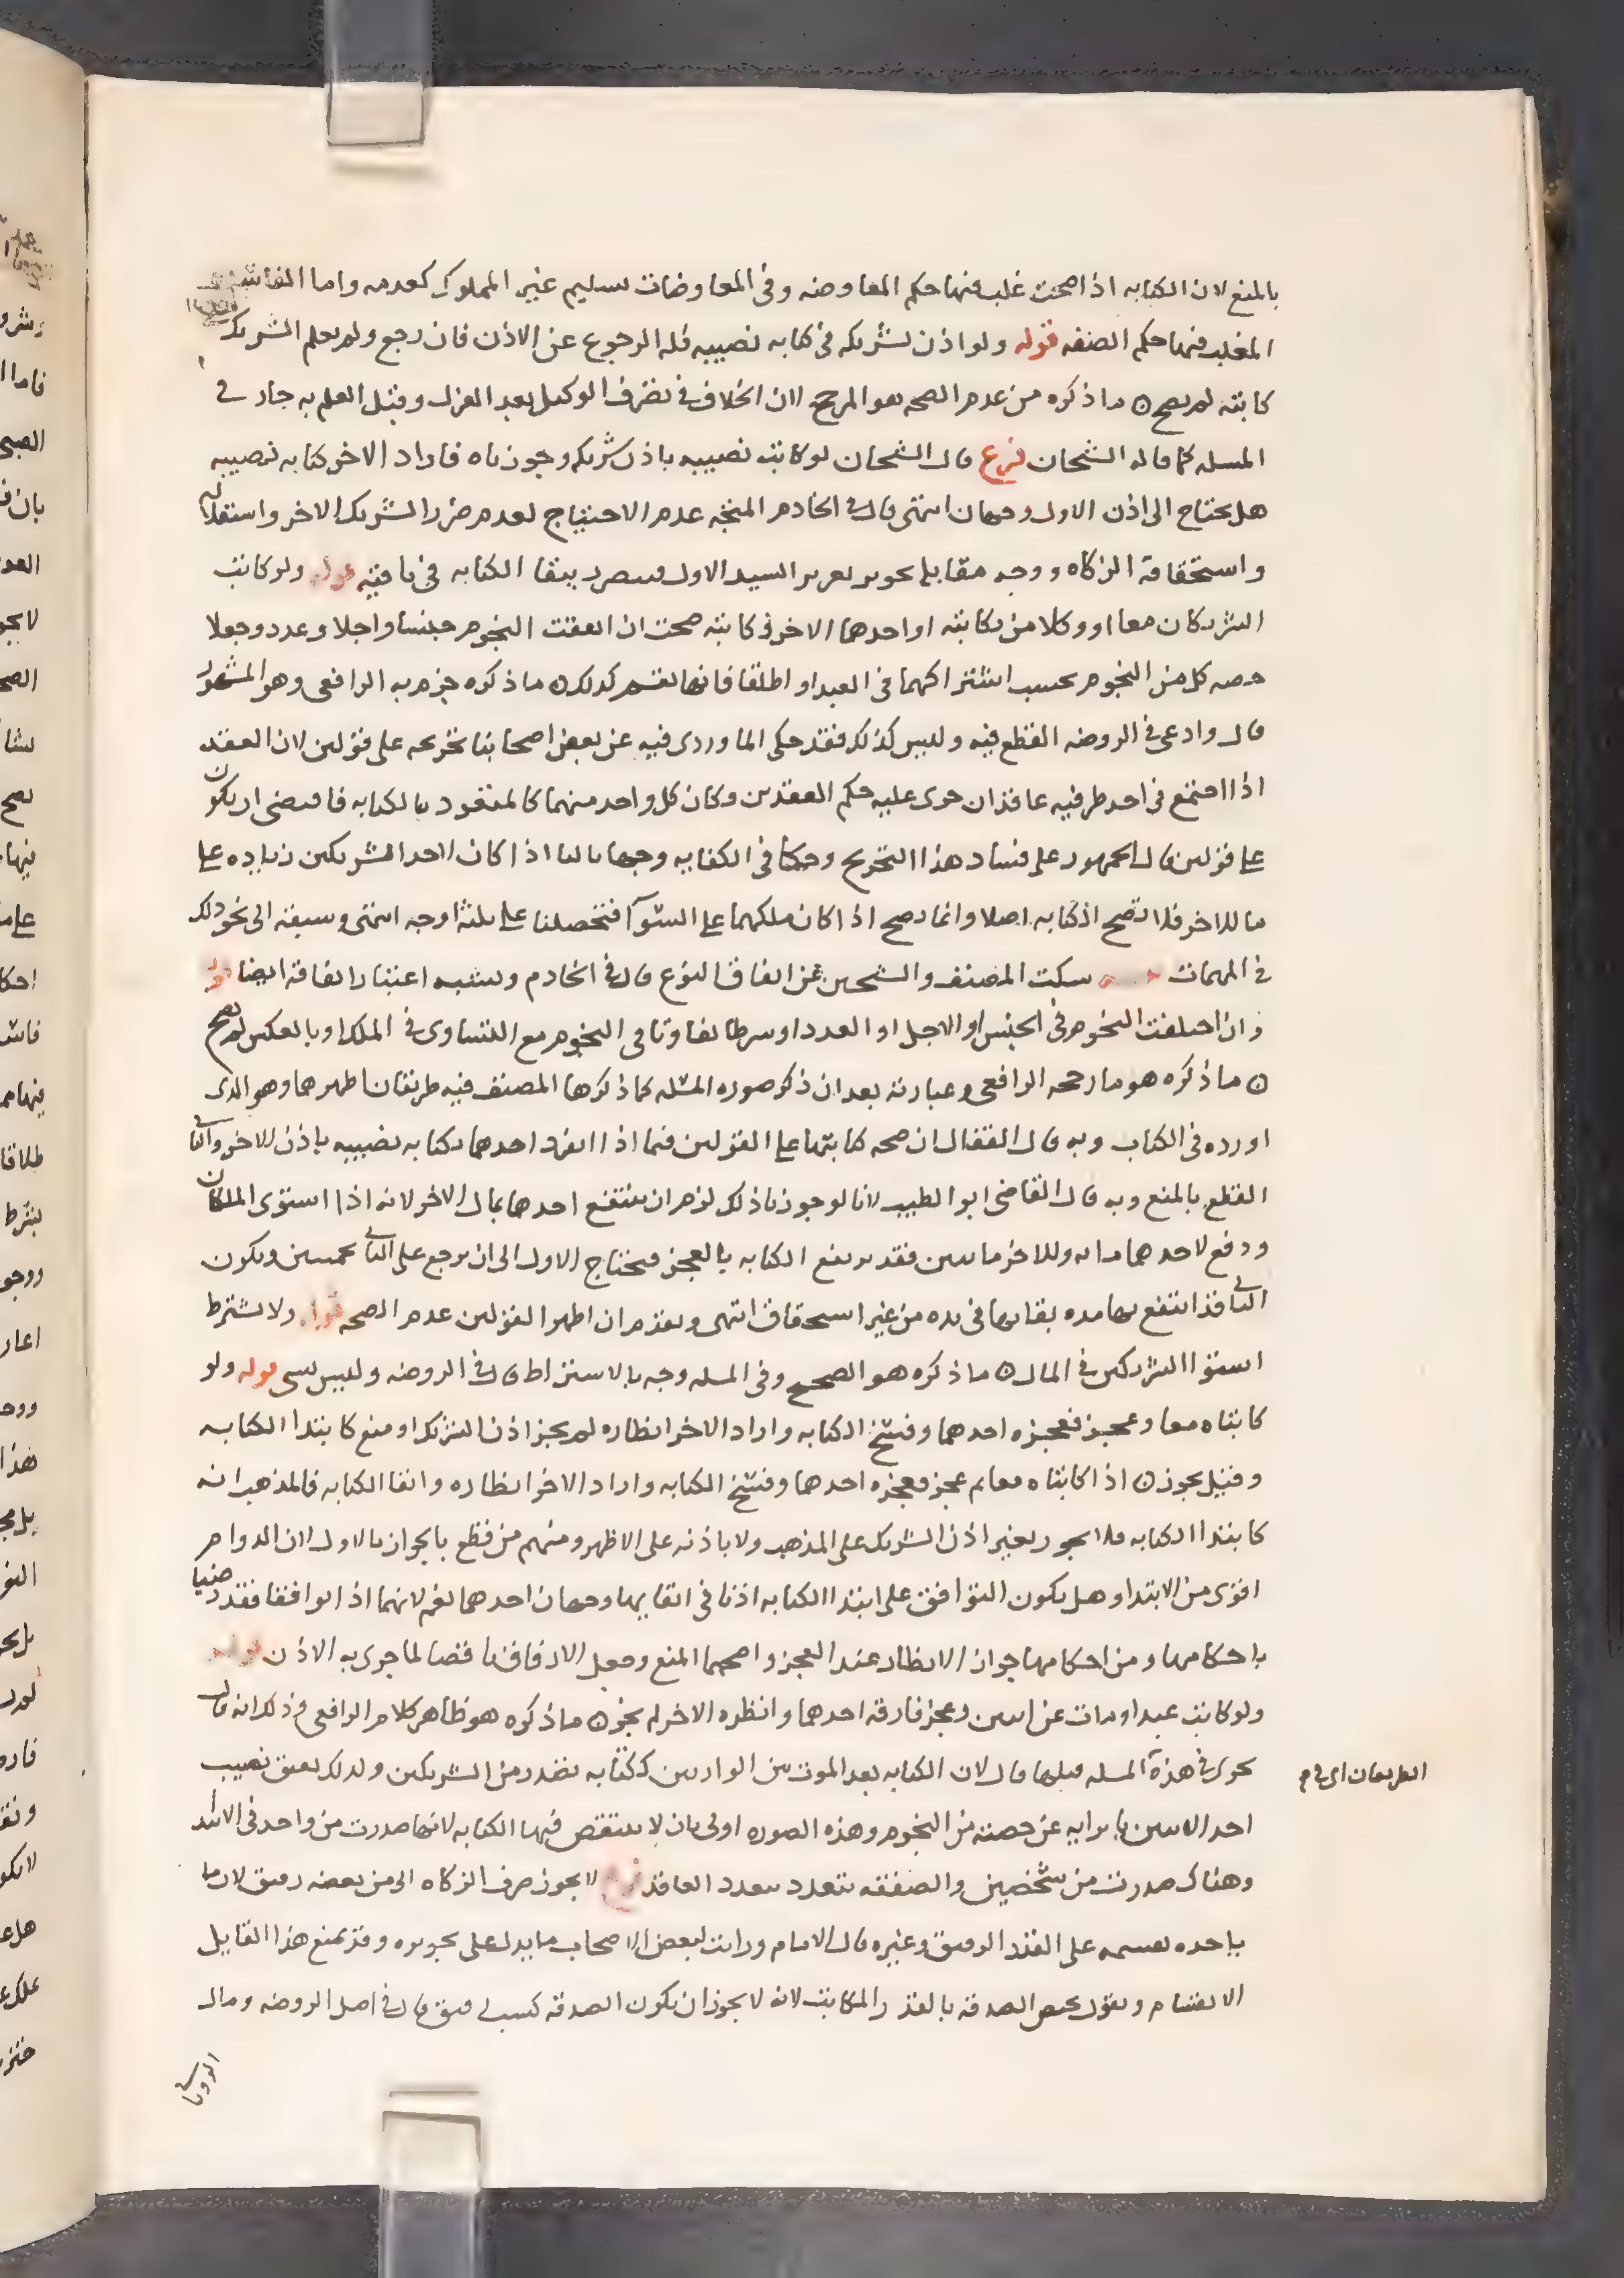 بالمنع لان الكتابه اذا صحت غلب فيها حكم المعاوضه وفي المعاوضات تسليم غير المملوك كعدمه واما الفاسدة
المغلب فيها حكم الصفه قوله ولو اذن لشريكه في كتابه نصيبه فله الرجوع عن الاذن فان رجع ولم يعلم الشريك
كابته لم يصح ن ما ذكره من عدم الصحه هو المرجح لان الخلاف في تصرف الوكيل بعد العزل وقبل العلم به جار في
المسله كما قاله الشيخان فرع قال الشيخان لو كاتب نصيبه باذن شريكه وجوزناه فاراد الاخر كتابه نصيبه
هل يحتاج الى اذن الاول وجهان انتهى قال في الخادم المتجه عدم الاحتياج لعدم ضرر الشريك الاخر واستقلاله
واستحقاقه الزكاه ووجه مقابله تحوير السيد الاول فيتضرر ببقا الكتابه في باقيه قوله ولو كاتب
الشريكان معا او وكلا من يكاتبه او احدهما الاخر في كتابته صحت ان اتفقت النجوم جنسا واجلا وعددا وجعلا
حصه كل من النجوم بحسب اشتراكهما في العبد او اطلقا فانها تقسم كذلك ن ما ذكره جزم به الرافعي وهو المشهور
قال وادعى في الروضه القطع فيه وليس كذلك فقد حكى الماوردي فيه عن بعض اصحابنا تخريجه على قولين لان العقد
اذا اجتمع في احد طرفيه عاقدان جرى عليه حكم العقدين وكان كل واحد منهما كالمنفرد بالكتابه فاقتضى ان يكون
على قولين قال الجمهور على فساد هذا التخريج وحكى في الكفايه وجها ثالثا اذا كان لاحد الشريكين زياده على
ما للاخر فلا تصح الكتابه اصلا وانما تصح اذا كان ملكهما على السوآ فتحصلنا على ثلثة اوجه انتهى وسبقه الى نحو ذلك
في المهمات سكت المصنف والشيخين عن اتفاق النوع قال في الخادم ويشبه اعتبار اتفاقه ايضا قوله
وان اختلفت النجوم في الجنس او الاجل او العدد او شرطا تفاوتا في النجوم مع التساوي في الملك او بالعكس لم يصح
ن ما ذكره هو ما رجحه الرافعي وعبارته بعد ان ذكر صوره المسله كما ذكرها المصنف فيه طريقان اظهرهما وهو الذي
اورده في الكتاب وبه قال القفال ان صحه كتابتها على القولين فيما اذا انفرد احدهما بكتابه نصيبه باذن الاخر والثاني
القطع بالمنع وبه قال القاضي ابو الطيب لانا لو جوزنا ذلك لزم ان ينتفع احدهما بمال الاخر لانه اذا استوى الملكان
ودفع لاحدهما مائه وللاخر مائتين فقد يرتفع الكتابه بالعجز فيحتاج الاول الى ان يرجع على الثاني بخمسين ويكون
الثاني قد انتفع بها مده بقائها في يده من غير استحقاق انتهى وتقدم ان اظهر القولين عدم الصحه قوله ولا يشترط
استوا الشريكين في المال ن ما ذكره هو الصحيح وفي المسله وجه بالاشتراط قال في الروضه وليس بشي قوله ولو
كاتباه معا وعجز فعجزه احدهما وفسخ الكتابه واراد الاخر انظاره لم يجز اذن الشريك او منع كابتدا الكتابه
وقيل يجوز ن اذا كاتباه معا ثم عجز فعجزه احدهما وفسخ الكتابه واراد الاخر انظاره وابقا الكتابه فالمذهب انه
كابتدا الكتابه فلا يجوز بغير اذن الشريك على المذهب ولا باذنه على الاظهر ومنهم من قطع بالجواز بالاول لان الدوام
اقوى من الابتدا وهل يكون التوافق على ابتدا الكتابه اذنا في ابقايها وجهان احدهما نعم لانهما اذا توافقا فقد رضيا
باحكامها ومن احكامها جواز الانظار عند العجز واصحهما المنع وجعل الارفاق ناقضا لما جرى به الاذن قوله
ولو كاتب عبدا ومات عن ابنين وعجز فارقه احدهما وانظره الاخر لم يجز ن ما ذكره هو ظاهر كلام الرافعي وذلك انه قال
يجري في هذه المسله قبلها قال لان الكتابه بعد الموت من الوارثين ككتابه تصدر من الشريكين ولذلك يعتق نصيب
الطريقان اي في م
احد الابنين بابرايه عن حصته من النجوم وهذه الصوره اولى بان لا ينتقض فيها الكتابه لانها صدرت من واحد في الابتدا
وهناك صدرت من شخصين والصفقه تتعدد بتعدد العاقد فرع لا يجوز صرف الزكاه الى من بعضه رقيق لان ما
ياخذه يقسمه على القدر الرقيق وغيره قال الامام ورايت لبعض الاصحاب ما يدل على تجويزه وقد يمنع هذا القايل
الانقسام ويقول يختص الصدقه بالقدر المكاتب لانه لا يجوز ان يكون الصدقه كسب قال في اصل الروضه وقال
الروياني